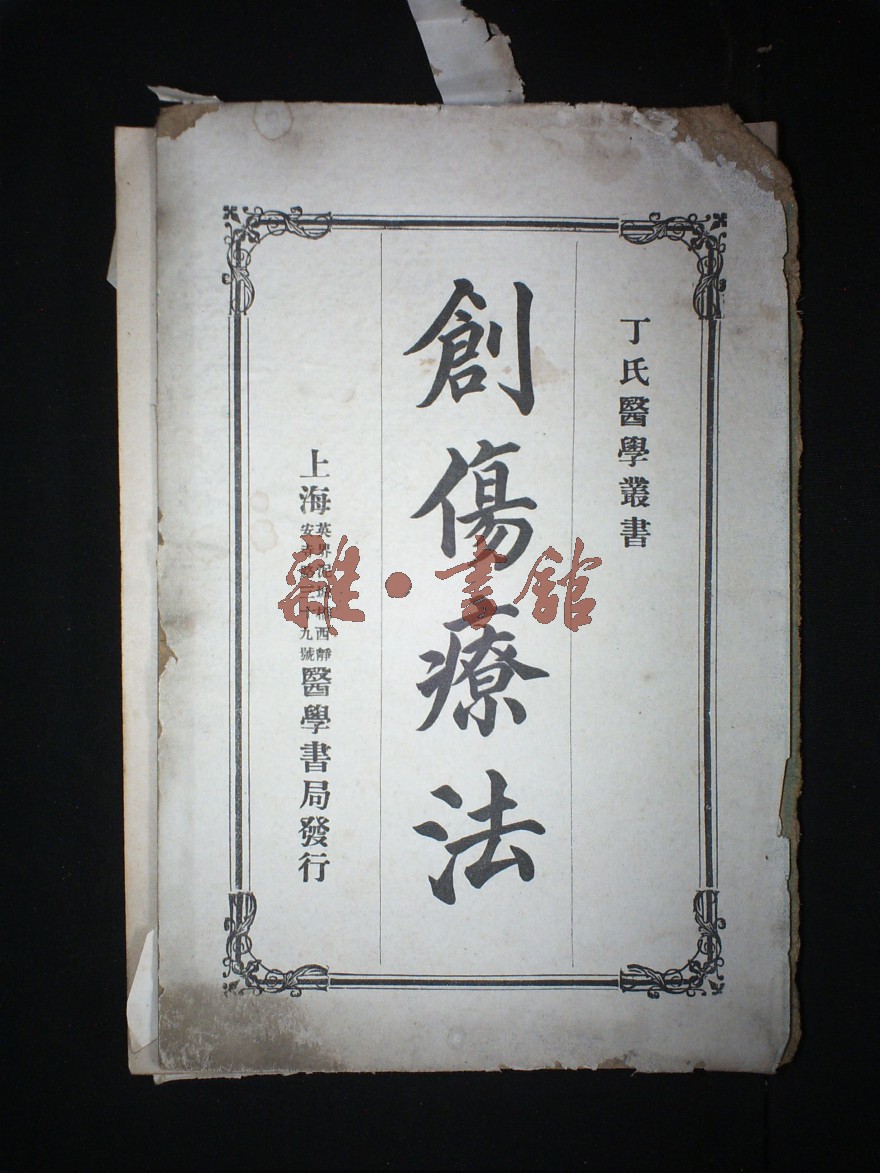 丁氏醫學叢書
創傷療法
上海英界泥城橋西靜安寺路三十九號醫學書局發行
雜·書館